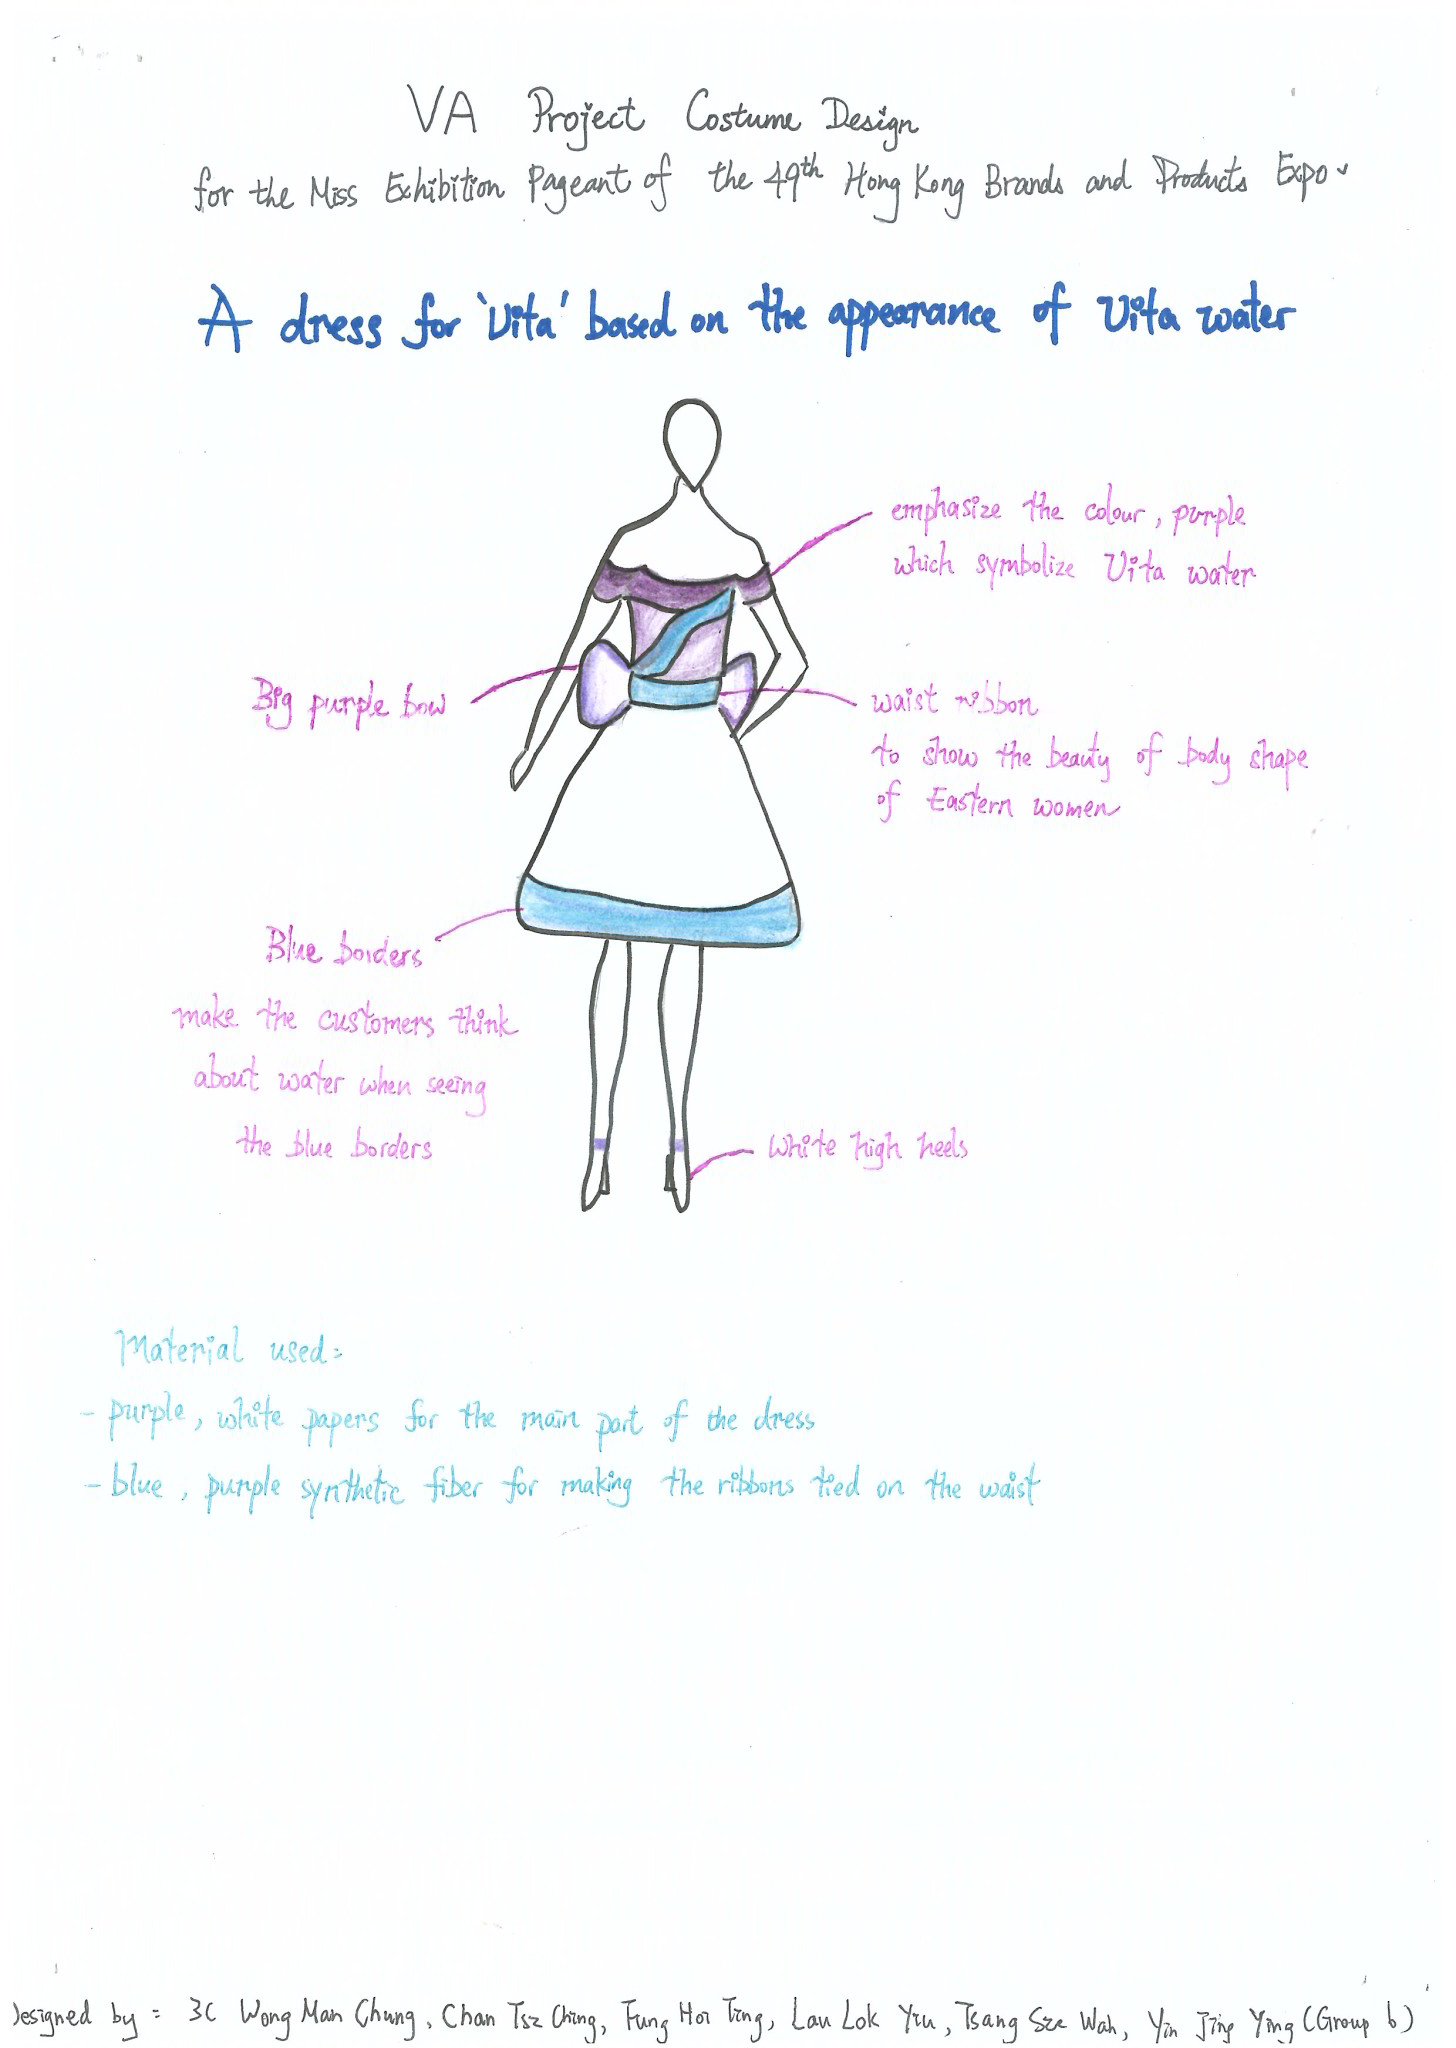 VA Project Costume Design
for the Miss Exhibition Pageant of the 49th Hong Kong Brands and Products Expo.
A dress for 'Vita' based on the appearance of Vita water
emphasize the colour, purple
which symbolize Vita water
Big purple bow
waist ribbon
to show the beauty of body shape
of Eastern women
Blue borders
make the customers think
about water when seeing
the blue borders
White high heels
Material used:
- purple, white papers for the main part of the dress
- blue, purple synthetic fiber for making the ribbons tied on the waist
Designed by: 3C Wong Man Chung, Chan Tsz Ching, Fung Hoi Ting, Lau Lok Yiu, Tsang Sze Wah, Yin Jing Ying (Group 6)